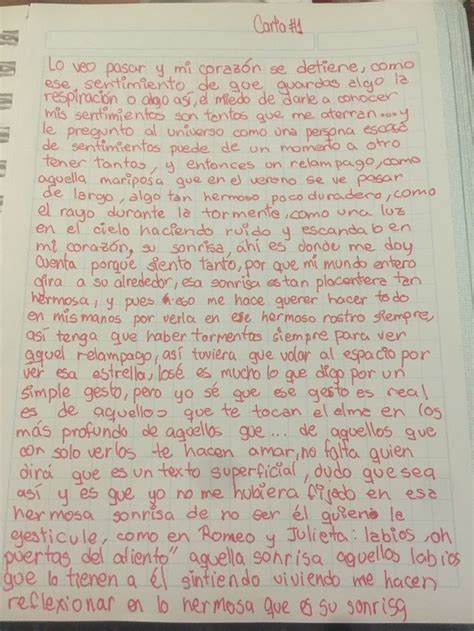 Carta #1
Lo veo pasar y mi corazón se detiene, como
ese sentimiento de que guardas algo la
respiración o algo así, el miedo de darle a conocer
mis sentimientos son tantos que me aterran.... y
le pregunto al universo como una persona escasa
de sentimientos puede de un momento a otro
tener tantas, y entonces un relampago, como
aquella mariposa que en el verano se ve pasar
de largo, algo tan hermoso, poco duradero, como
el rayo durante la tormenta, como una luz
en el cielo haciendo ruido y escandalo en
mi corazón, su sonrisa, ahi es donde me doy
cuenta porqué siento tanto, por que mi mundo entero
gira a su alrededor, esa sonrisa es tan placentera tan
hermosa, y pues eso me hace querer hacer todo
en mis manos por verla en ese hermoso rostro siempre,
así tenga que haber tormentas siempre para ver
aquel relampago, así tuviera que volar al espacio por
ver esa estrella, losé es mucho lo que digo por un
simple gesto, pero yo sé que ese gesto es real
es de aquellos que te tocan el alma en los
más profundo de aquellos que ... de aquellos que
con solo verlos te hacen amar, no falta quien
dirá que es un texto superficial, dudo que sea
así y es que yo no me hubiera fijado en esa
hermosa sonrisa de no ser él quiene la
gesticule, como en Romeo y Julieta: labios, oh
puertas del aliento" aquella sonrisa aquellos labios
que lo tienen a él sintiendo viviendo me hacen
reflexionar en lo hermosa que es su sonrisa